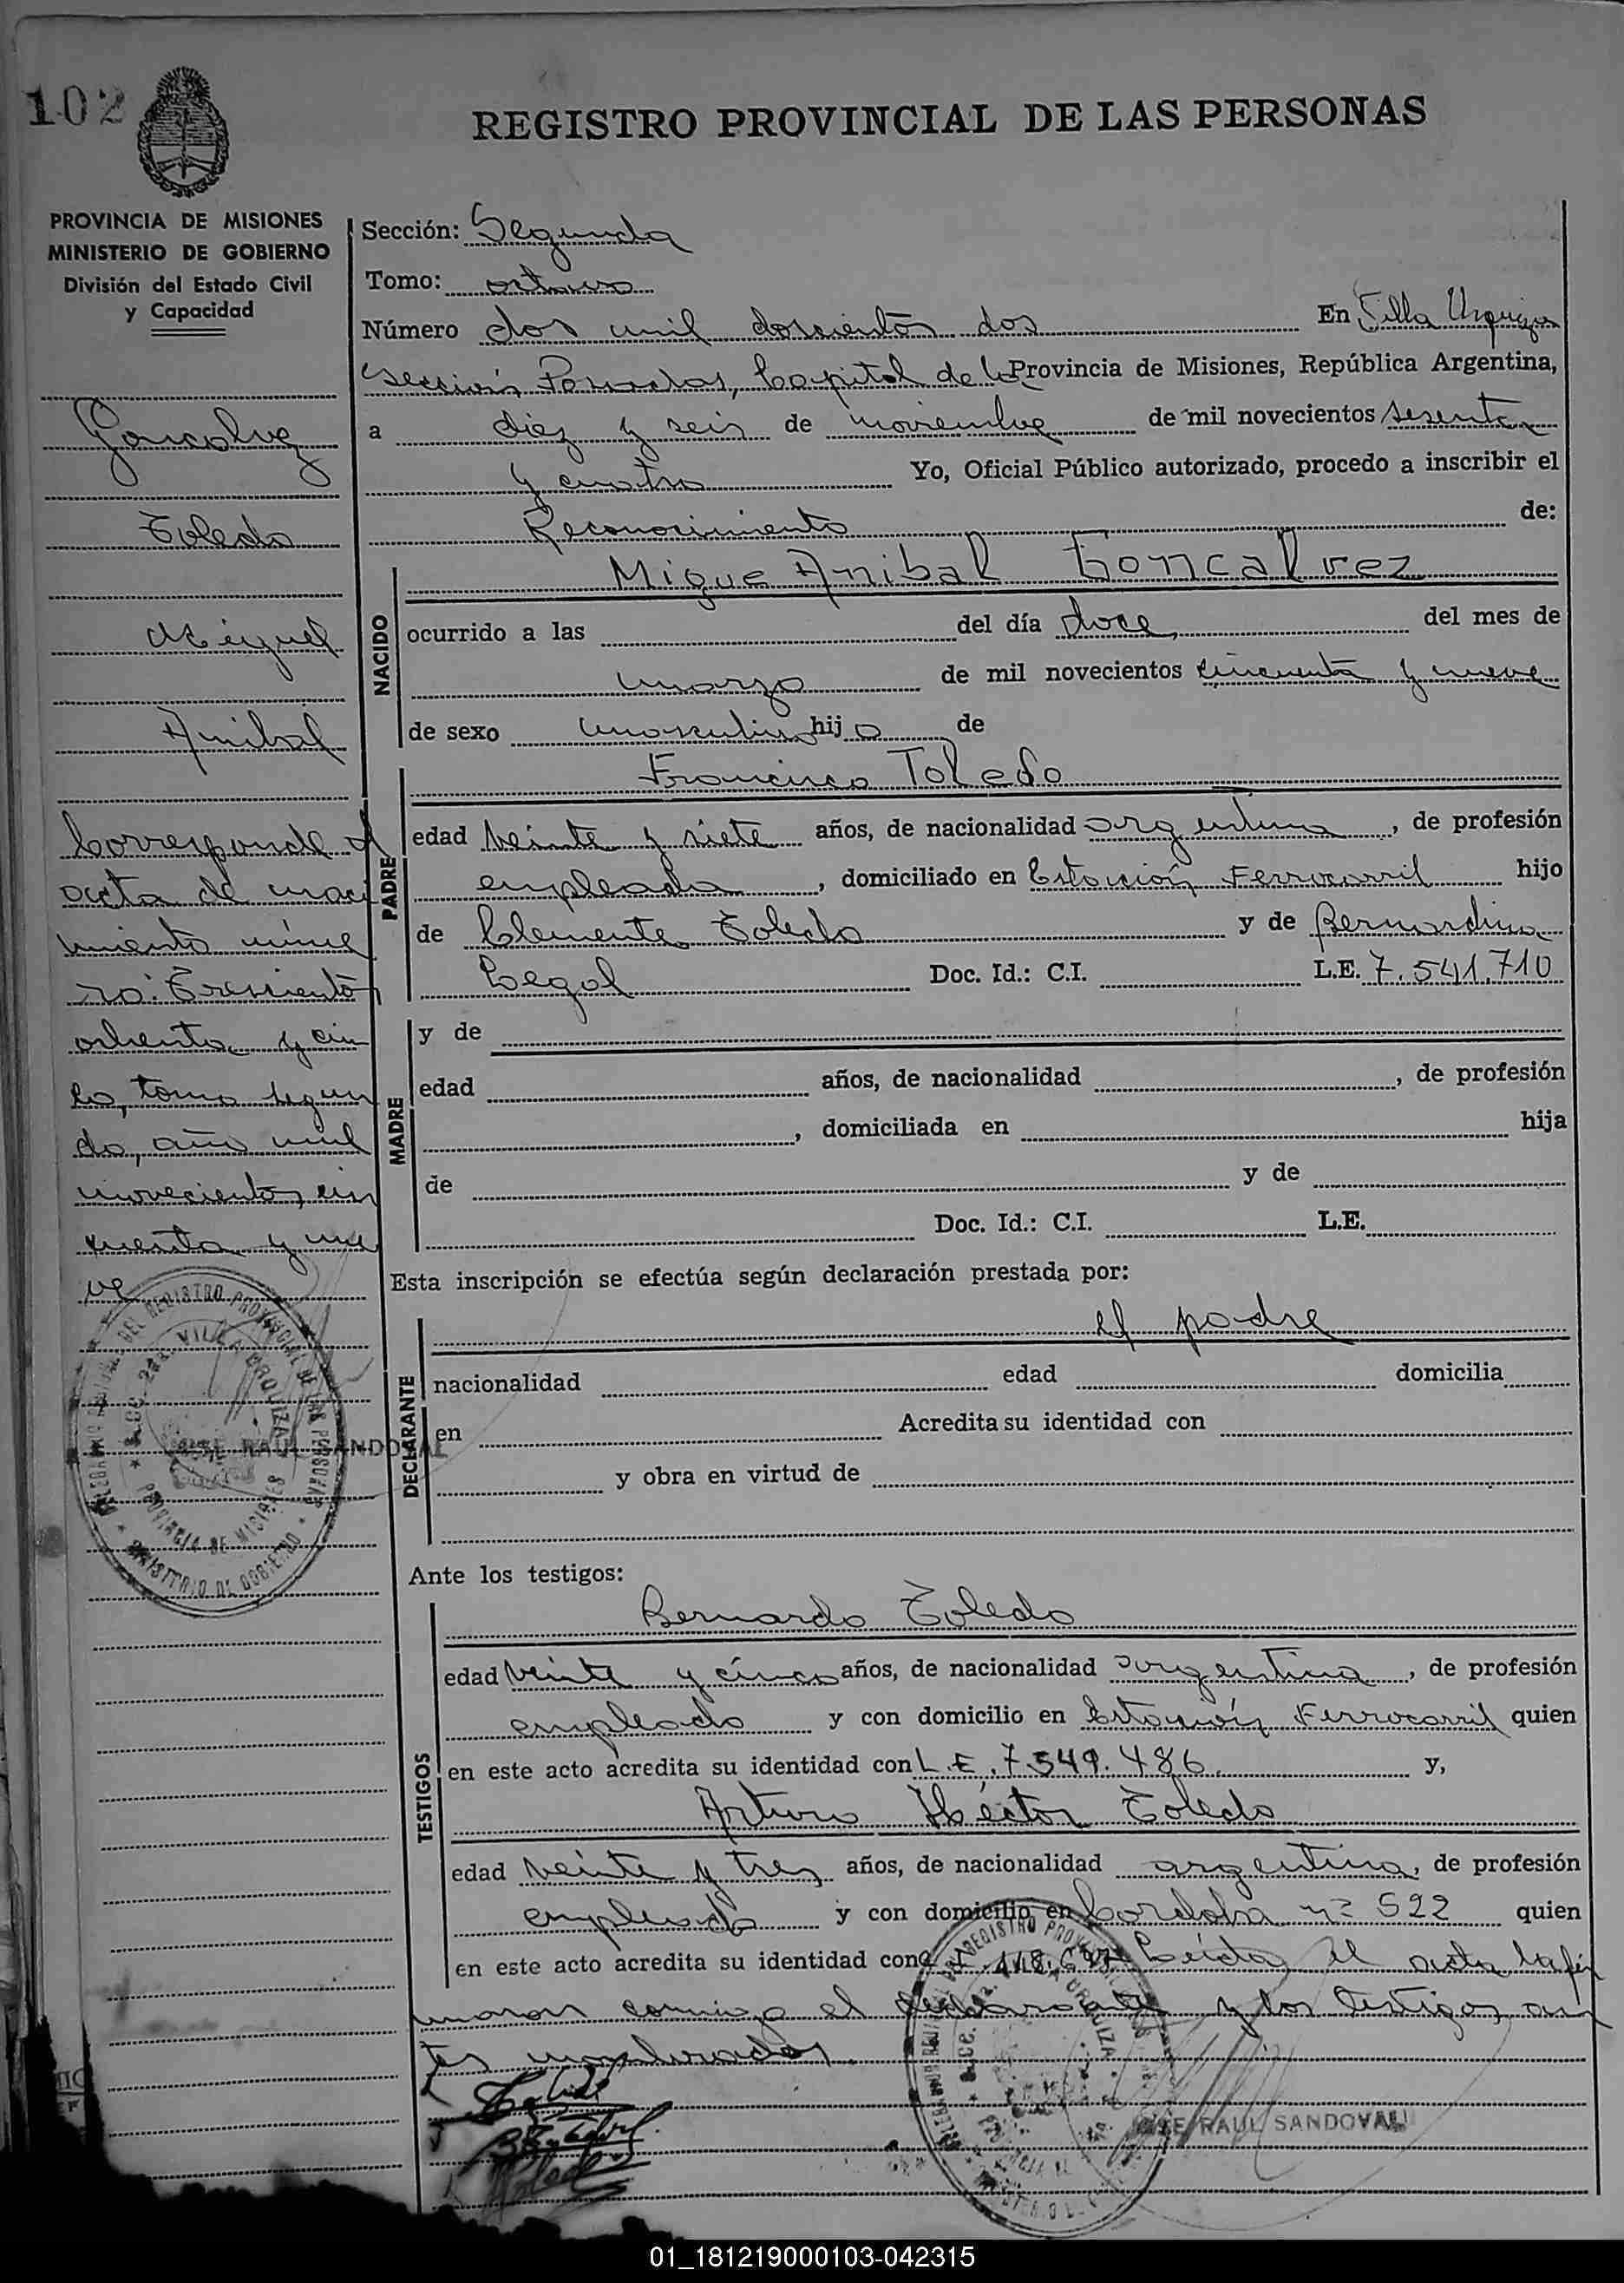 102
REGISTRO PROVINCIAL DE LAS PERSONAS
PROVINCIA DE MISIONES
MINISTERIO DE GOBIERNO
División del Estado Civil
y Capacidad
Goncalvez
Toledo
Miguel
Anibal
Corresponde al
acta de naci
miento núme
ro: Trescientos
ochenta y cin
co, tomo segun
do, año mil
novecientos cin
cuenta y nue
ve
JOSE RAUL SANDOVAL
Sección: Segunda
Tomo: octavo
Número dos mil doscientos dos En Villa Urquiza
Sección Posadas, Capital de la Provincia de Misiones, República Argentina,
a diez y seis de noviembre de mil novecientos sesenta
y cuatro Yo, Oficial Público autorizado, procedo a inscribir el
Reconocimiento de:
NACIDO
Migue Anibal Goncalvez
ocurrido a las del día doce, del mes de
marzo de mil novecientos cincuenta y nueve
de sexo masculino hijo de
PADRE
Francisco Toledo
edad veinte y siete años, de nacionalidad argentina, de profesión
empleado, domiciliado en Estación Ferrocarril hijo
de Clemente Toledo y de Bernardina
Legal Doc. Id.: C.I. L.E. 7.541.710
MADRE
y de
edad años, de nacionalidad , de profesión
, domiciliada en hija
de y de
Doc. Id.: C.I. L.E.
Esta inscripción se efectúa según declaración prestada por:
DECLARANTE
el padre
nacionalidad edad domicilia
en Acredita su identidad con
y obra en virtud de
Ante los testigos:
TESTIGOS
Bernardo Toledo
edad veinte y cinco años, de nacionalidad argentina, de profesión
empleado y con domicilio en Estación Ferrocarril quien
en este acto acredita su identidad con L.E. 7.549.486. y,
Arturo Héctor Toledo
edad veinte y tres años, de nacionalidad argentina, de profesión
empleado y con domicilio en Cordoba nº 522 quien
en este acto acredita su identidad con Leída el acta la fir
maron conmigo el declarante y los testigos an
tes nombrados.
JOSE RAUL SANDOVAL
01_181219000103-042315